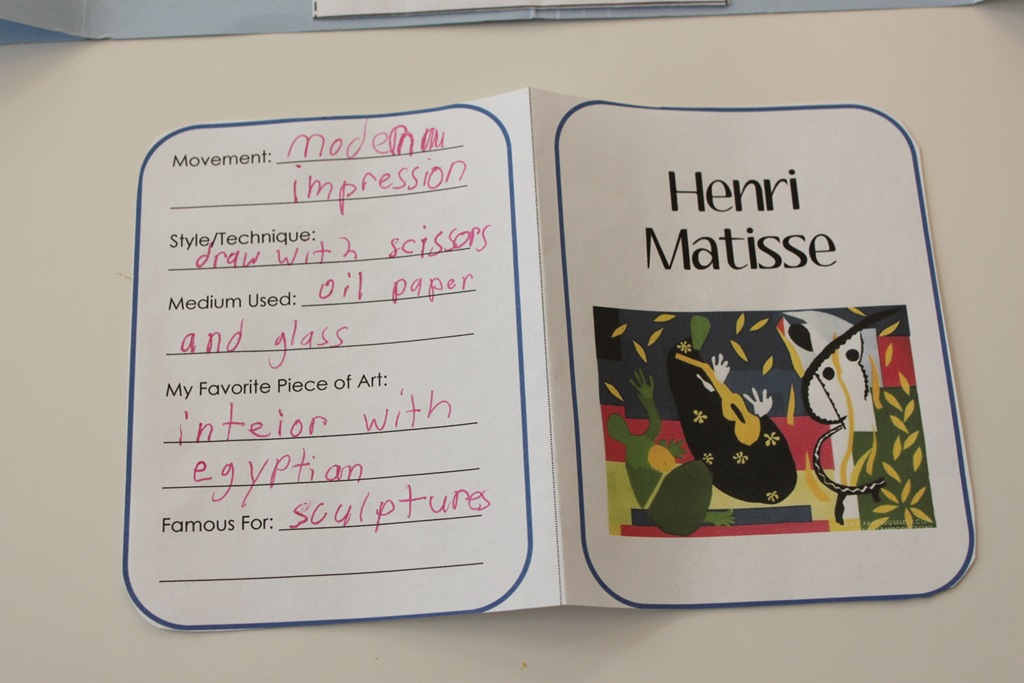 Movement: modern
impression
Style/Technique:
draw with scissors
Medium Used: oil paper
and glass
My Favorite Piece of Art:
inteior with
egyptian
Famous For: sculptures
Henri
Matisse